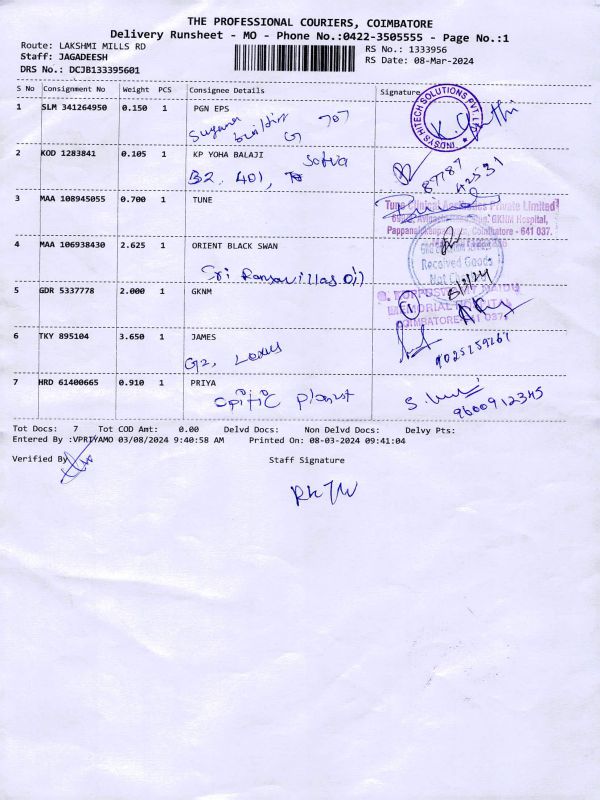 THE PROFESSIONAL COURIERS, COIMBATORE
Delivery Runsheet - MO - Phone No.:0422-3505555 - Page No.:1
Route: LAKSHMI MILLS RD
RS No.: 1333956
Staff: JAGADEESH
RS Date: 08-Mar-2024
DRS No.: DCJB133395601
S No Consignment No Weight PCS Consignee Details Signature
1 SLM 341264950 0.150 1 PGN EPS
707
INDSYS HITECH SOLUTIONS PVT LTD
2 KOD 1283841 0.105 1 KP YOHA BALAJI
B2, 401,
87787
42531
3 MAA 108945055 0.700 1 TUNE
GKNM Hospital,
Coimbatore - 641 037.
4 MAA 106938430 2.625 1 ORIENT BLACK SWAN
Received Goods
Not Checked
8/3/24
5 GDR 5337778 2.000 1 GKNM
MEMORIAL HOSPITAL
6 TKY 895104 3.650 1 JAMES
G2, Lexus
7 HRD 61400665 0.910 1 PRIYA
opitic planet
9600912345
Tot Docs: 7 Tot COD Amt: 0.00 Delvd Docs: Non Delvd Docs: Delvy Pts:
Entered By :VPRIYAMO 03/08/2024 9:40:58 AM Printed On: 08-03-2024 09:41:04
Verified By
Staff Signature